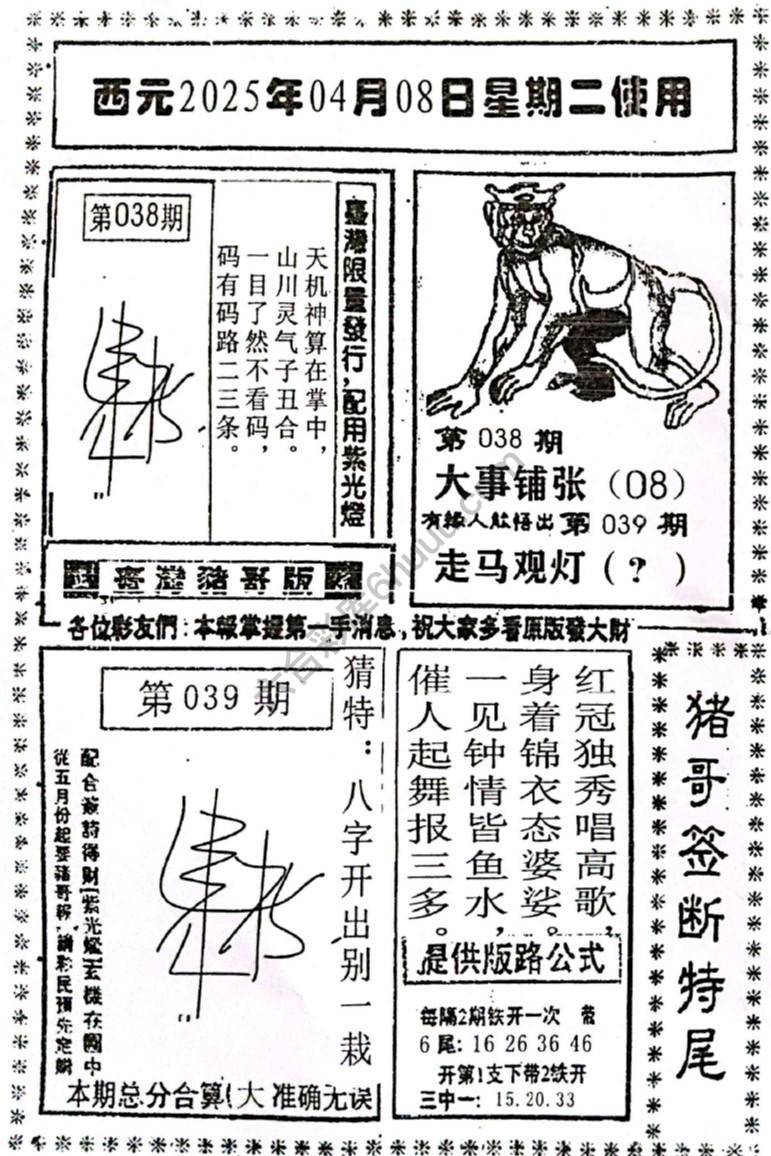 西元2025年04月08日星期二使用
第038期
天机神算在掌中，
山川灵气子丑合。
一目了然不看码，
码有码路二三条。
臺灣限量發行，配用紫光燈
第 038 期
大事铺张（08）
有緣人能悟出 第 039 期
走马观灯（？）
臺灣豬哥版
各位彩友們：本報掌握第一手消息，祝大家多看原版發大財
第 039 期
猜特：八字开出别一栽
配合籤詩得財[紫光燈]玄機在圖中
從五月份起要豬哥報，請彩民預先定購
本期总分合算(大 准确无误
红冠独秀唱高歌，
身着锦衣态婆娑。
一见钟情皆鱼水，
催人起舞报三多。
提供版路公式
每隔2期铁开一次 带
6尾：16 26 36 46
开第1支下带2铁开
三中一：15.20.33
猪哥签断特尾
六合彩库6huuu.com